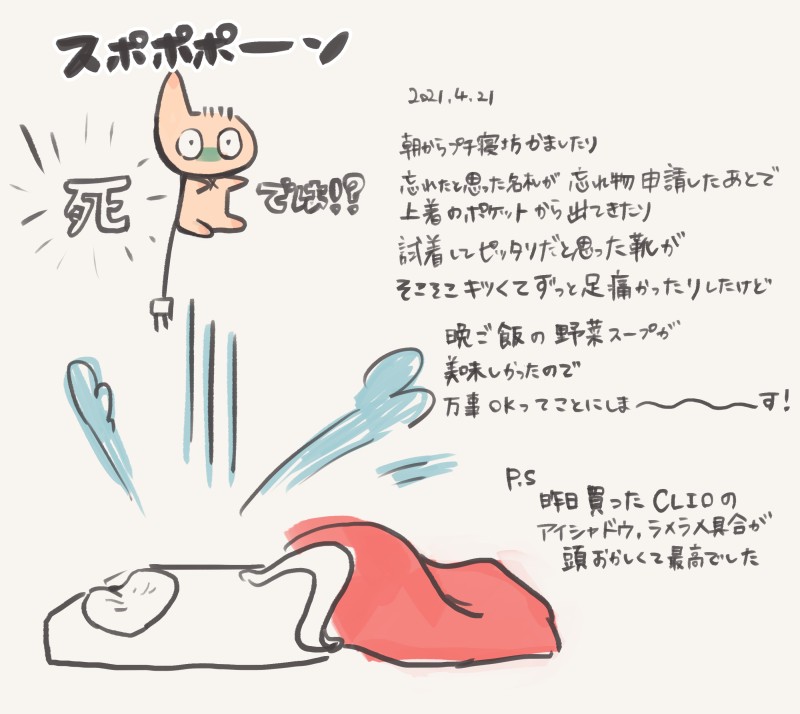 スポポポーン
死
では!!?
2021.4.21
朝からプチ寝坊かましたり
忘れたと思った名札が 忘れ物申請したあとで
上着のポケットから出てきたり
試着してピッタリだと思った靴が
そこそこキツくてずっと足痛かったりしたけど
晩ご飯の野菜スープが
美味しかったので
万事OKってことにしま〜〜〜す!
P.S
昨日買ったCLIOの
アイシャドウ,ラメラメ具合が
頭おかしくて最高でした